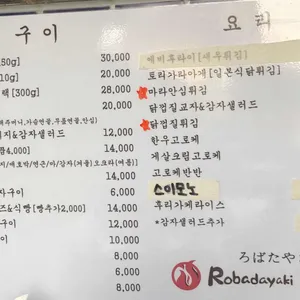 구이
80g] 30,000
10g] 20,000
택 [300g] 28,000
20,000
지&감자샐러드 12,000
4,000] 14,000
구이 14,000
즈&식빵 [빵추가2,000] 14,000
구이 12,000
이 10,000
8,000
8,000
요리
에비후라이 [새우튀김]
토리가라아게 [일본식닭튀김]
마라안심튀김
닭껍질교자&감자샐러드
닭껍질튀김
한우고로케
게살크림고로케
고로케반반
스이모노
후리가케라이스
*감자샐러드추가
ろばたや
Robadayaki